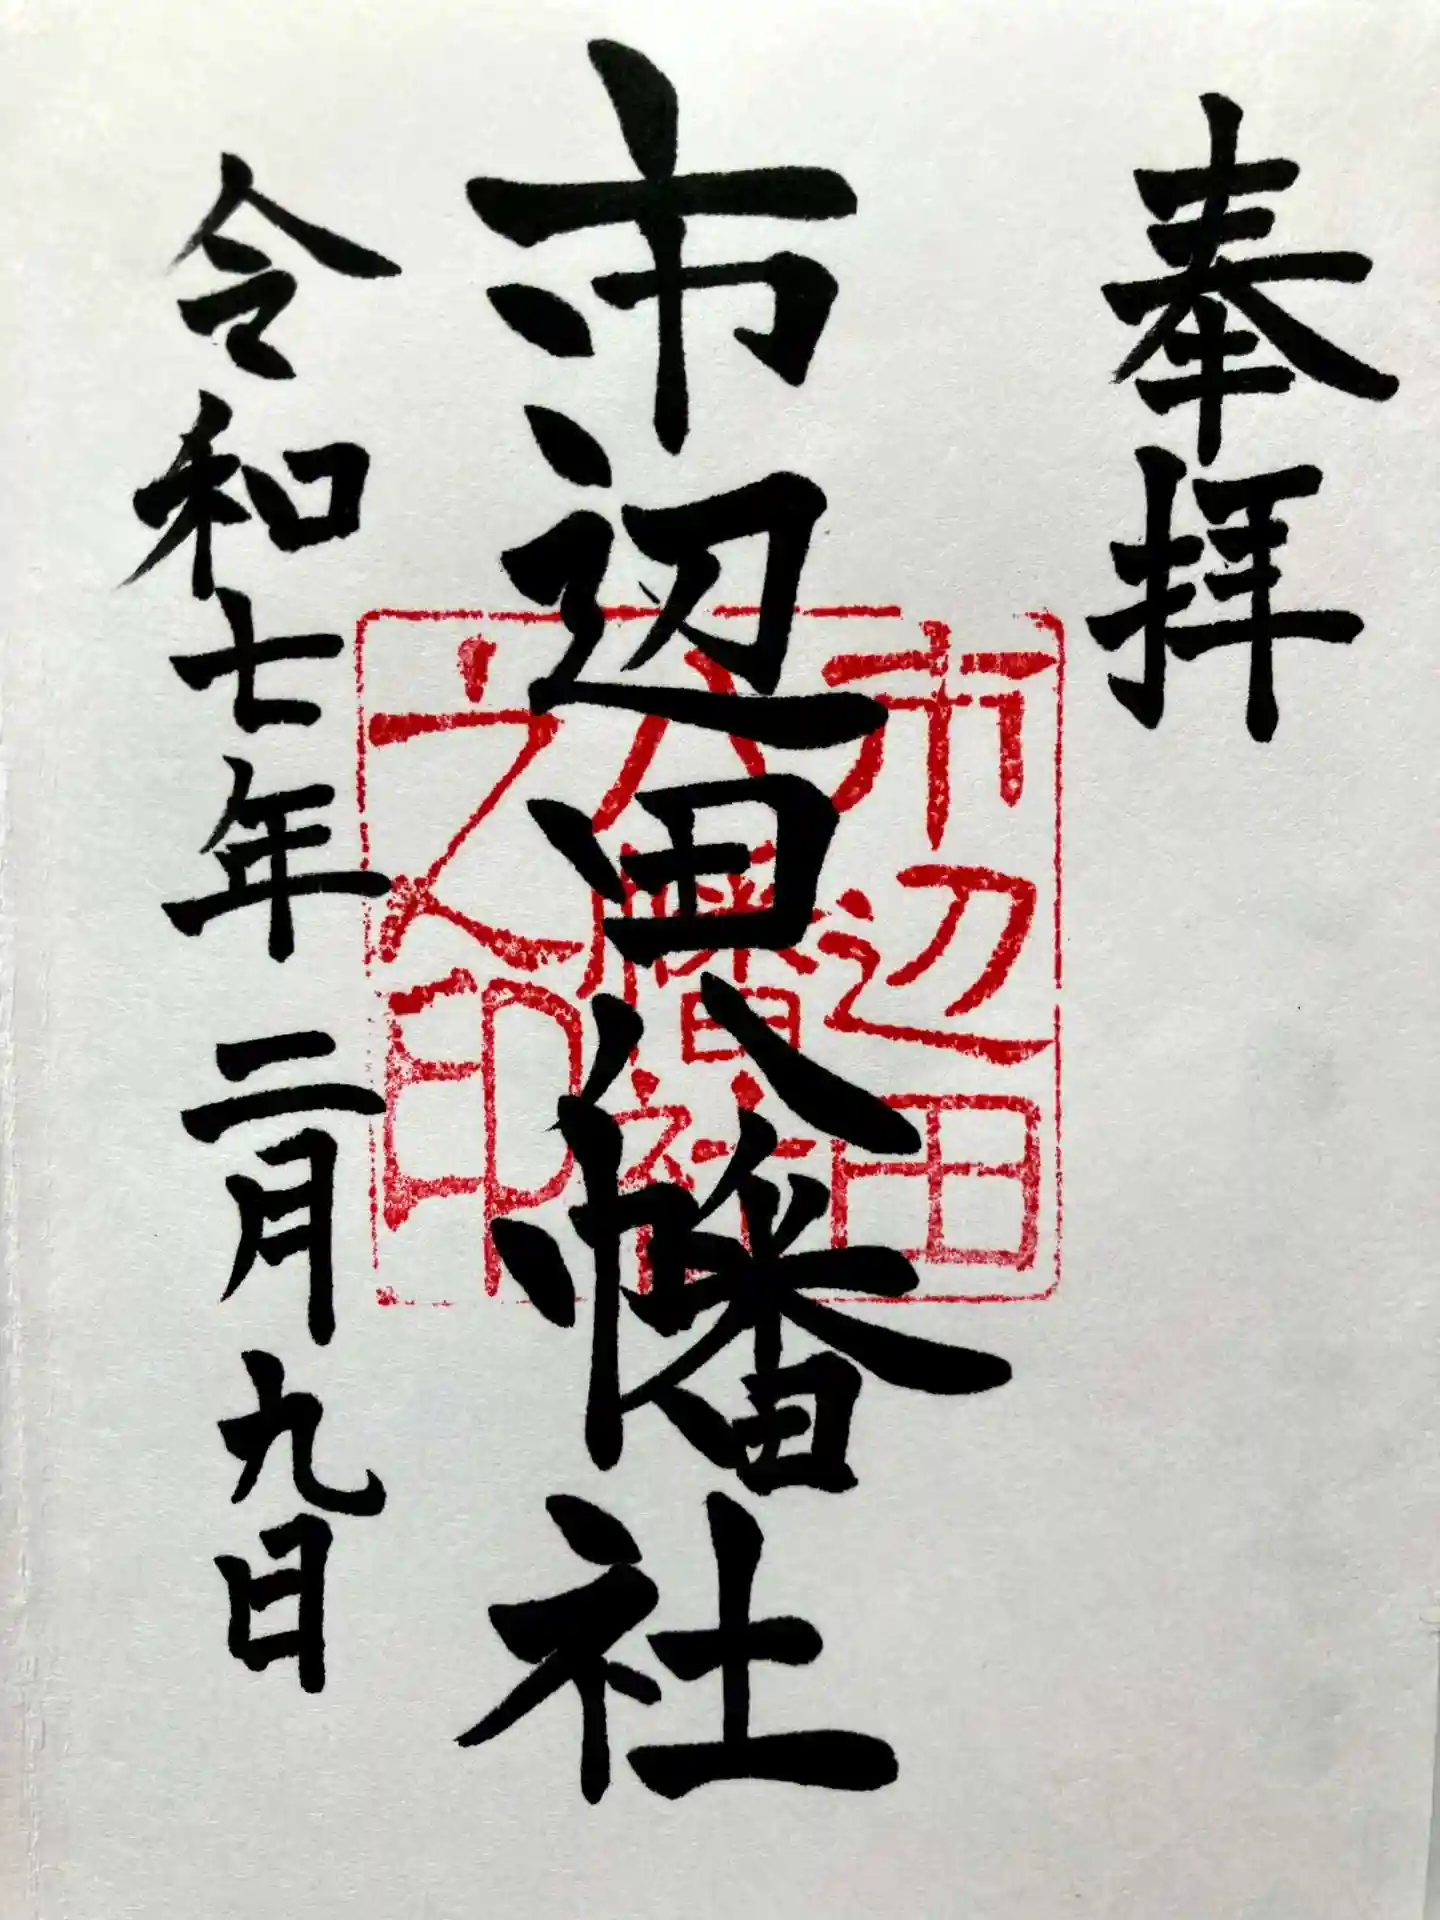 奉拝
市辺田八幡社
令和七年二月九日
市辺田
八幡社
之印